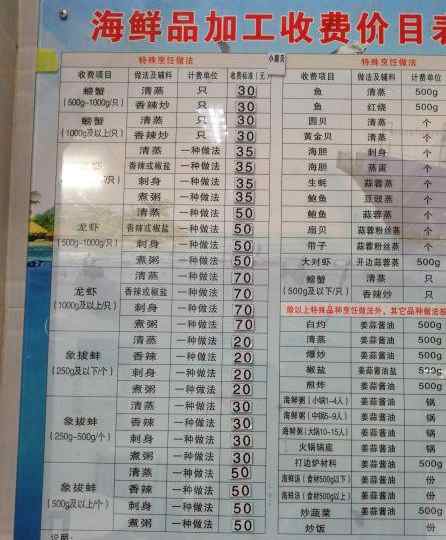 海鲜品加工收费价目
特殊烹饪做法
收费项目 做法及辅料 计费单位 收费标准(元)
螃蟹 (500g-1000g/只) 清蒸 只 30
香辣炒 只 30
螃蟹 (1000g及以上/只) 清蒸 只 30
香辣炒 只 30
清蒸 一种做法 35
香辣或椒盐 一种做法 35
刺身 一种做法 35
煮粥 一种做法 35
龙虾 (500g-1000g/只) 清蒸 一种做法 50
香辣或椒盐 一种做法 50
刺身 一种做法 50
煮粥 一种做法 50
龙虾 (1000g及以上/只) 清蒸 一种做法 70
香辣或椒盐 一种做法 70
刺身 一种做法 70
煮粥 一种做法 70
象拔蚌 (250g及以下/个) 清蒸 一种做法 20
香辣 一种做法 20
刺身 一种做法 20
煮粥 一种做法 20
象拔蚌 (250g-500g/个) 清蒸 一种做法 30
香辣 一种做法 30
刺身 一种做法 30
煮粥 一种做法 30
象拔蚌 (500g及以上/个) 清蒸 一种做法 50
香辣 一种做法 50
刺身 一种做法 50
煮粥 一种做法 50
说明:
特殊烹饪做法
收费项目 做法及辅料 计费单位
鱼 清蒸 500g
鱼 红烧 500g
圆贝 清蒸 个
黄金贝 清蒸 个
海胆 刺身 个
海胆 蒸蛋 个
生蚝 蒜蓉蒸 个
鲍鱼 豆豉蒸 个
鲍鱼 蒜蓉蒸 个
扇贝 蒜蓉粉丝蒸 个
带子 蒜蓉粉丝蒸 个
大对虾 开边蒜蓉蒸 500g
螃蟹 (500g及以下/只) 清蒸 只
香辣炒 只
除以上特殊品种烹饪做法外,其它品种做法
白灼 姜蒜酱油 500g
清蒸 姜蒜酱油 500g
爆炒 姜蒜酱油 500g
椒盐 姜蒜酱油盐 500g
煎炸 姜蒜酱油 500g
海鲜粥(小锅1-4人) 姜蒜酱油 锅
海鲜粥(中锅5-9人) 姜蒜酱油 锅
海鲜粥(大锅10-15人) 姜蒜酱油 锅
火锅锅底 姜蒜酱油 锅
打边炉材料 姜蒜酱油 500g
海鲜汤(食材500g以下) 姜蒜酱油 份
海鲜汤(食材500g以上) 姜蒜酱油 份
炒蔬菜 姜蒜酱油 500g
炒饭 姜蒜酱油 份